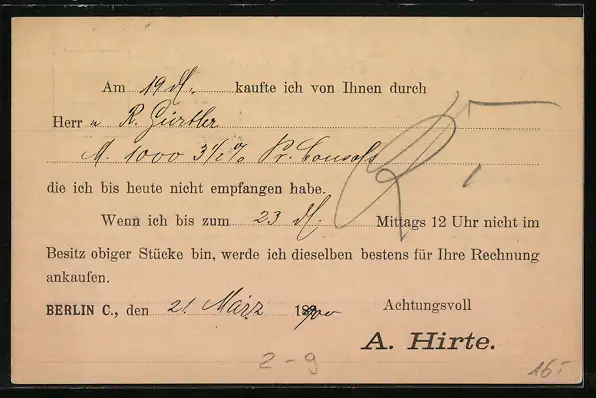 Am 19 d. kaufte ich von Ihnen durch
Herr R. Gürtler
M. 1000 3 1/2 % Pr. Consols
die ich bis heute nicht empfangen habe.
Wenn ich bis zum 23 d. Mittags 12 Uhr nicht im
Besitz obiger Stücke bin, werde ich dieselben bestens für Ihre Rechnung
ankaufen.
BERLIN C., den 21 März 1900
Achtungsvoll
A. Hirte.
2-9
16.-